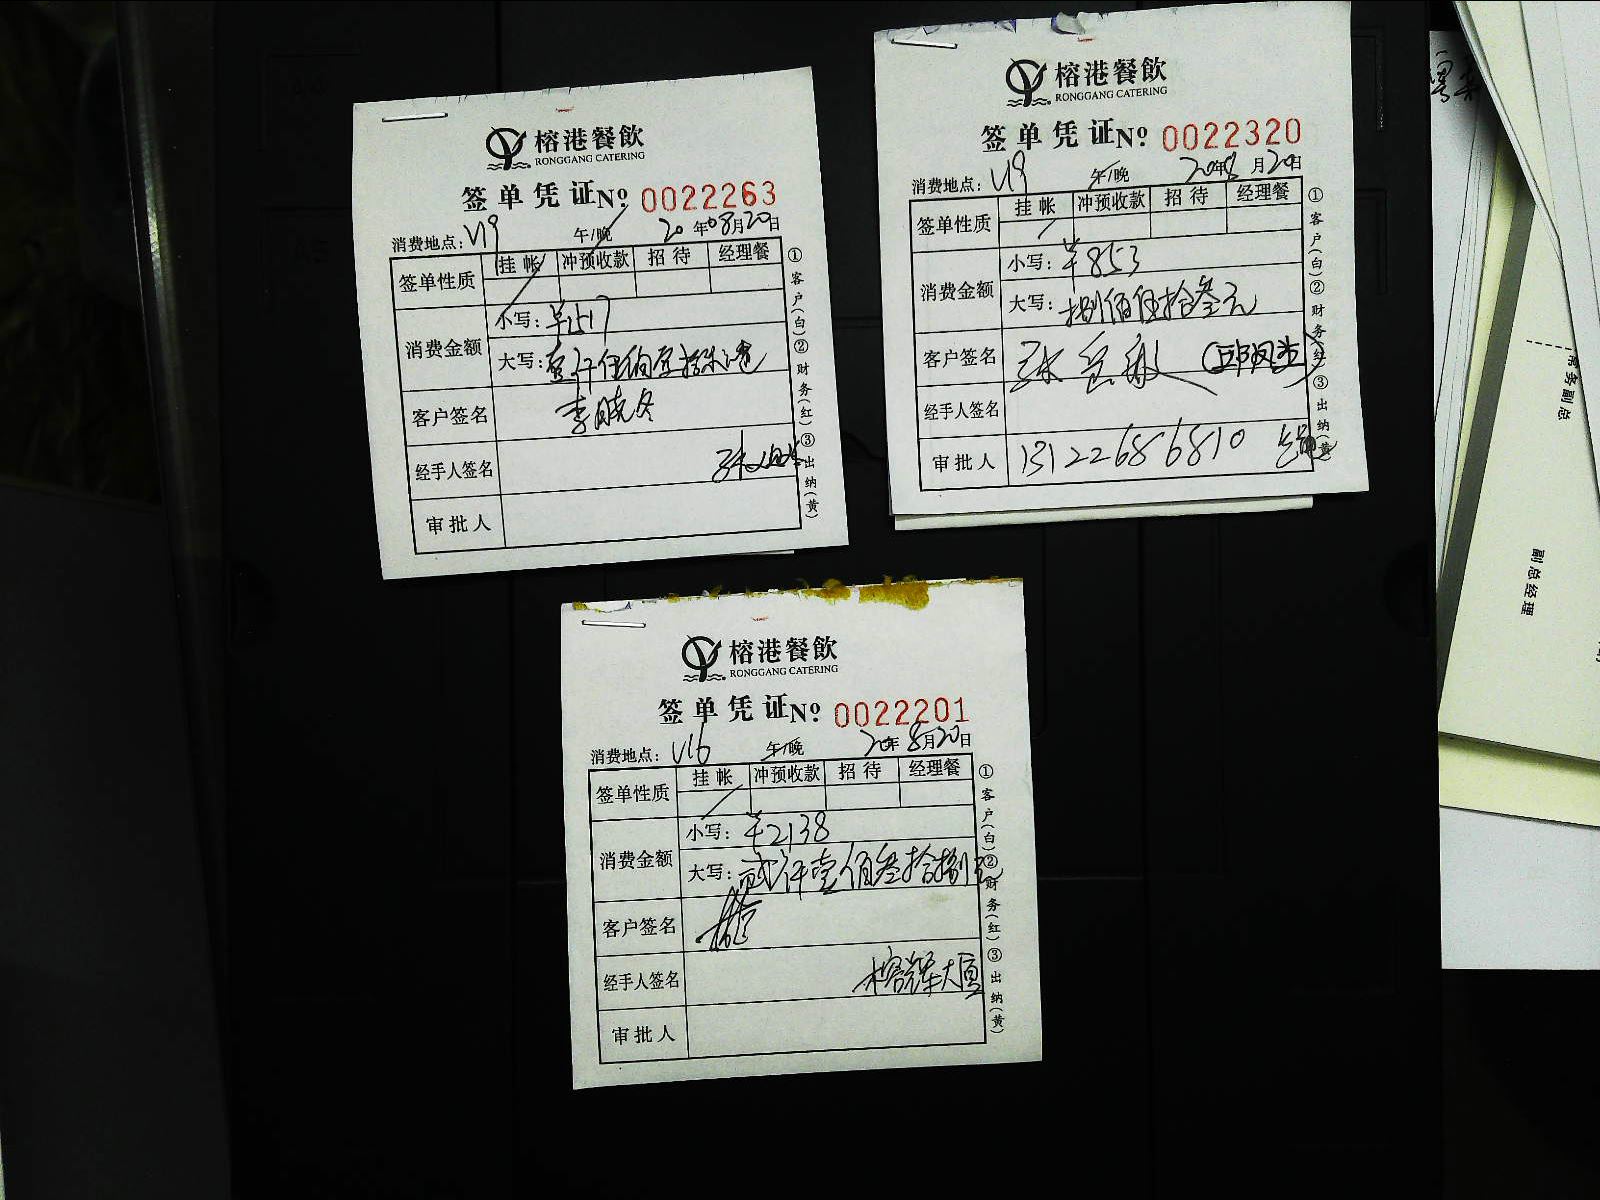 榕港餐飲
RONGGANG CATERING
签单凭证 Nº 0022263
消费地点: V19 午/晚 20年08月20日
签单性质 挂帐 冲预收款 招待 经理餐
消费金额 小写: ¥1517
大写: 壹仟伍佰壹拾柒元
客户签名 李晓冬
经手人签名
审批人
①客户(白)②财务(红)③出纳(黄)
榕港餐飲
RONGGANG CATERING
签单凭证 Nº 0022320
消费地点: V19 午/晚 20年8月20日
签单性质 挂帐 冲预收款 招待 经理餐
消费金额 小写: ¥853
大写: 捌佰伍拾叁元
客户签名
经手人签名
审批人 13122686810
①客户(白)②财务(红)③出纳(黄)
榕港餐飲
RONGGANG CATERING
签单凭证 Nº 0022201
消费地点: V16 午/晚 20年8月20日
签单性质 挂帐 冲预收款 招待 经理餐
消费金额 小写: ¥2138
大写: 贰仟壹佰叁拾捌元
客户签名
经手人签名 榕辉大厦
审批人
①客户(白)②财务(红)③出纳(黄)
常务副总
副总经理